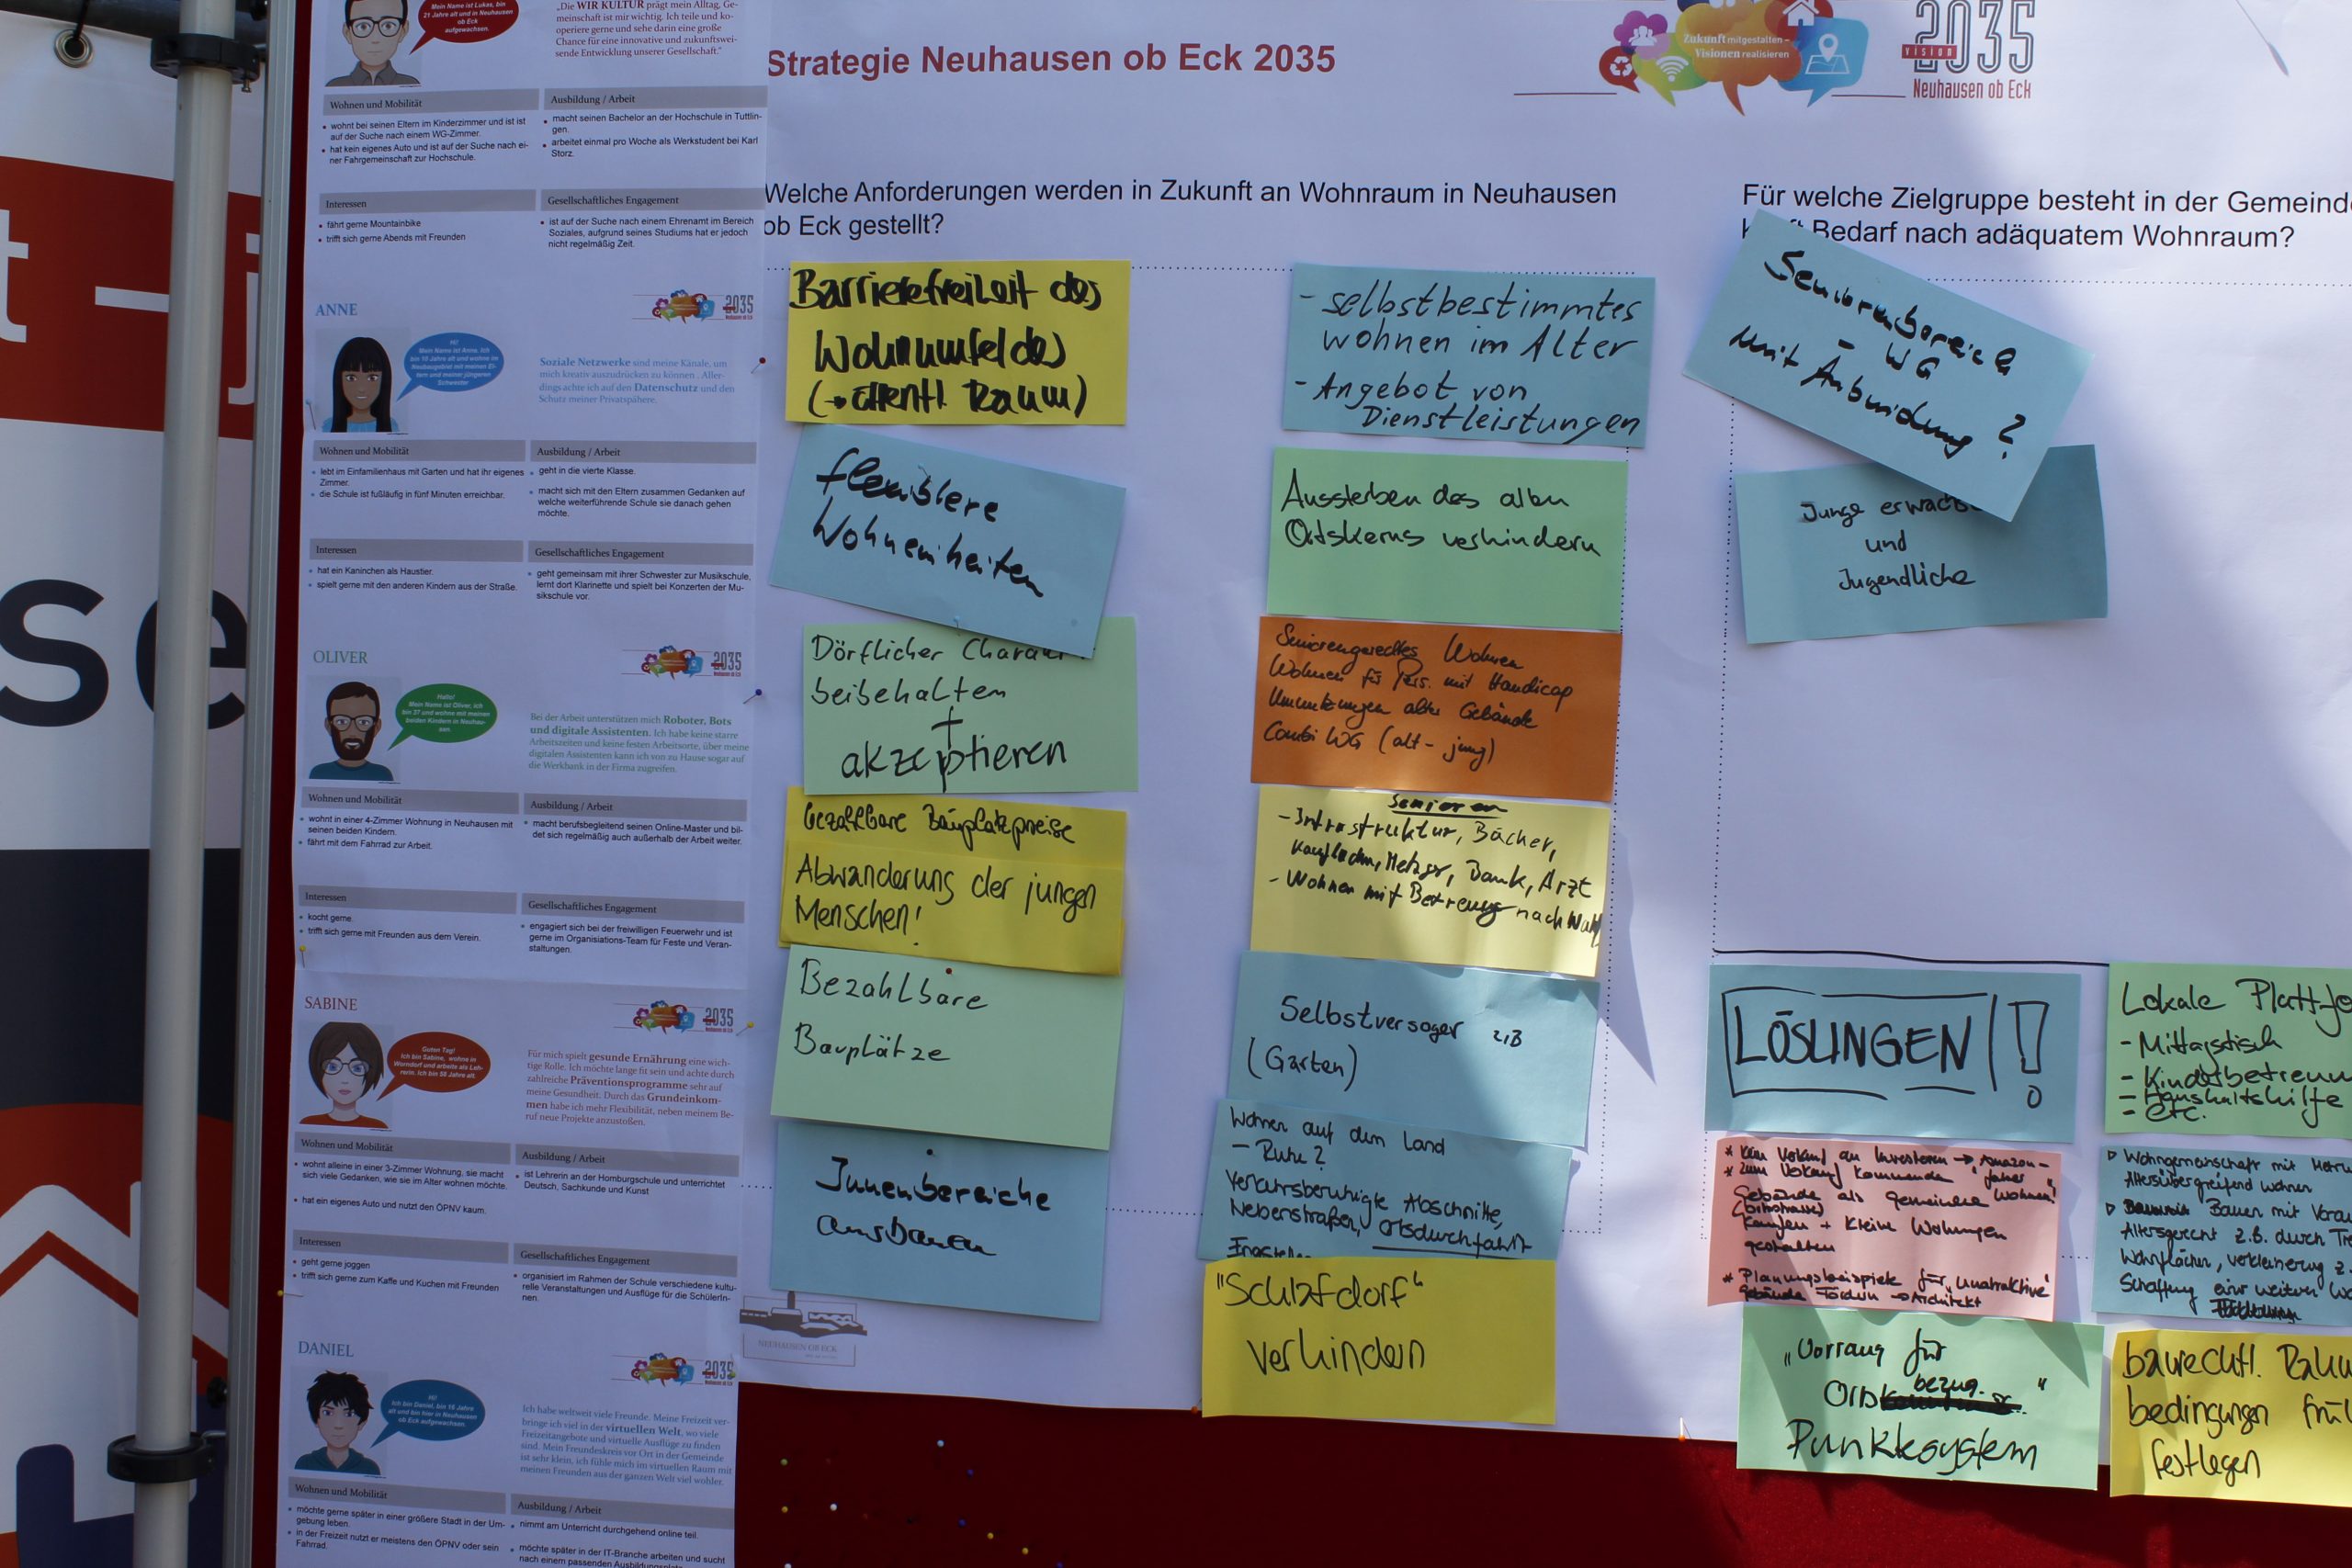 Mein Name ist Lukas, bin
21 Jahre alt und in Neuhausen
ob Eck
aufgewachsen.
„Die WIR KULTUR prägt mein Alltag, Ge-
meinschaft ist mir wichtig. Ich teile und ko-
operiere gerne und sehe darin eine große
Chance für eine innovative und zukunftswei-
sende Entwicklung unserer Gesellschaft."
Wohnen und Mobilität
wohnt bei seinen Eltern im Kinderzimmer und ist ist
auf der Suche nach einem WG-Zimmer.
hat kein eigenes Auto und ist auf der Suche nach ei-
ner Fahrgemeinschaft zur Hochschule.
Ausbildung / Arbeit
macht seinen Bachelor an der Hochschule in Tuttlin-
gen.
arbeitet einmal pro Woche als Werkstudent bei Karl
Storz.
Interessen
fährt gerne Mountainbike
trifft sich gerne Abends mit Freunden
Gesellschaftliches Engagement
ist auf der Suche nach einem Ehrenamt im Bereich
Soziales, aufgrund seines Studiums hat er jedoch
nicht regelmäßig Zeit.
ANNE
2035
Hi!
Mein Name ist Anne, ich
bin 10 Jahre alt und wohne im
Neubaugebiet mit meinen El-
tern und meiner jüngeren
Schwester
Soziale Netzwerke sind meine Kanäle, um
mich kreativ auszudrücken zu können. Aller-
dings achte ich auf den Datenschutz und den
Schutz meiner Privatsphäre.
Wohnen und Mobilität
lebt im Einfamilienhaus mit Garten und hat ihr eigenes
Zimmer.
die Schule ist fußläufig in fünf Minuten erreichbar.
Ausbildung / Arbeit
geht in die vierte Klasse.
macht sich mit den Eltern zusammen Gedanken auf
welche weiterführende Schule sie danach gehen
möchte.
Interessen
hat ein Kaninchen als Haustier.
spielt gerne mit den anderen Kindern aus der Straße.
Gesellschaftliches Engagement
geht gemeinsam mit ihrer Schwester zur Musikschule,
lernt dort Klarinette und spielt bei Konzerten der Mu-
sikschule vor.
OLIVER
2035
Hallo!
Mein Name ist Oliver, ich
bin 37 und wohne mit meinen
beiden Kindern in Neuhau-
sen.
Bei der Arbeit unterstützen mich Roboter, Bots
und digitale Assistenten. Ich habe keine starre
Arbeitszeiten und keine festen Arbeitsorte, über meine
digitalen Assistenten kann ich von zu Hause sogar auf
die Werkbank in der Firma zugreifen.
Wohnen und Mobilität
wohnt in einer 4-Zimmer Wohnung in Neuhausen mit
seinen beiden Kindern.
fährt mit dem Fahrrad zur Arbeit.
Ausbildung / Arbeit
macht berufsbegleitend seinen Online-Master und bil-
det sich regelmäßig auch außerhalb der Arbeit weiter.
Interessen
kocht gerne.
trifft sich gerne mit Freunden aus dem Verein.
Gesellschaftliches Engagement
engagiert sich bei der freiwilligen Feuerwehr und ist
gerne im Organisiations-Team für Feste und Veran-
staltungen.
SABINE
2035
Guten Tag!
Ich bin Sabine, wohne in
Worndorf und arbeite als Leh-
rerin. Ich bin 58 Jahre alt.
Für mich spielt gesunde Ernährung eine wich-
tige Rolle. Ich möchte lange fit sein und achte durch
zahlreiche Präventionsprogramme sehr auf
meine Gesundheit. Durch das Grundeinkom-
men habe ich mehr Flexibilität, neben meinem Be-
ruf neue Projekte anzustoßen.
Wohnen und Mobilität
wohnt alleine in einer 3-Zimmer Wohnung, sie macht
sich viele Gedanken, wie sie im Alter wohnen möchte.
hat ein eigenes Auto und nutzt den ÖPNV kaum.
Ausbildung / Arbeit
ist Lehrerin an der Homburgschule und unterrichtet
Deutsch, Sachkunde und Kunst
Interessen
geht gerne joggen
trifft sich gerne zum Kaffe und Kuchen mit Freunden
Gesellschaftliches Engagement
organisiert im Rahmen der Schule verschiedene kultu-
relle Veranstaltungen und Ausflüge für die SchülerIn-
nen.
DANIEL
2035
Hi!
Ich bin Daniel, bin 16 Jahre
alt und bin hier in Neuhausen
ob Eck aufgewachsen.
Ich habe weltweit viele Freunde. Meine Freizeit ver-
bringe ich viel in der virtuellen Welt, wo viele
Freizeitangebote und virtuelle Ausflüge zu finden
sind. Mein Freundeskreis vor Ort in der Gemeinde
ist sehr klein, ich fühle mich im virtuellen Raum mit
meinen Freunden aus der ganzen Welt viel wohler.
Wohnen und Mobilität
möchte gerne später in einer größere Stadt in der Um-
gebung leben.
in der Freizeit nutzt er meistens den ÖPNV oder sein
Fahrrad.
Ausbildung / Arbeit
nimmt am Unterricht durchgehend online teil.
möchte später in der IT-Branche arbeiten und sucht
nach einem passenden Ausbildungsplatz
Strategie Neuhausen ob Eck 2035
Zukunft mitgestalten –
Visionen realisieren
VISION
2035
Neuhausen ob Eck
Welche Anforderungen werden in Zukunft an Wohnraum in Neuhausen
ob Eck gestellt?
Barrierefreiheit des
Wohnumfeldes
(→ öffentl. Raum)
flexiblere
Wohneinheiten
Dörflicher Charak
beibehalten
+
akzeptieren
bezahlbare Bauplatzpreise
Abwanderung der jungen
Menschen!
Bezahlbare
Bauplätze
Innenbereiche
ausbauen
NEUHAUSEN OB ECK
- selbstbestimmtes
wohnen im Alter
- Angebot von
Dienstleistungen
Aussterben des alten
Ortskerns verhindern
Seniorengerechtes Wohnen
Wohnen für Pers. mit Handicap
Umnutzungen alter Gebäude
Combi WG (alt - jung)
Senioren
- Infrastruktur, Bäcker,
Kaufladen, Metzger, Bank, Arzt
- Wohnen mit Betreuung nach Wahl
Selbstversoger z.B
(Garten)
Wohnen auf dem Land
- Ruhe?
Verkehrsberuhigte Abschnitte,
Nebenstraßen, Ortsdurchfahrt
"Schlafdorf"
verhindern
Für welche Zielgruppe besteht in der Gemeinde
Bedarf nach adäquatem Wohnraum?
Seniorenbereich
- WG
mit Anbindung ?
Junge erwachs
und
Jugendliche
LÖSUNGEN !
Lokale Plattfo
- Mittagstisch
- Kinderbetreuun
- Haushaltshilfe
- etc.
* Kein Verkauf an Investoren → Amazon-
* zum Verkauf kommende
Gebäude als Gemeinde
kaufen + kleine Wohnungen
gestalten
* Planungsbeispiele für "unattraktive"
Gebäude fördern → Architekt
▷ Wohngemeinschaft mit
Altersübergreifend wohnen
▷ Bauen mit
Altersgerecht z.B. durch
Wohnflächen, verkleinerung z.
Schaffung einer weiteren
„Vorrang für
Orts bezug. "
Punktesystem
baurechtl.
bedingungen
festlegen
t – j
se